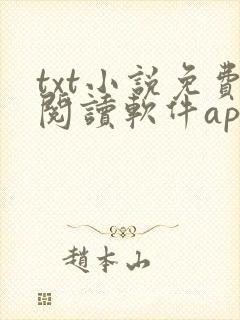 txt小説免費
閱讀軟件ap
趙本山